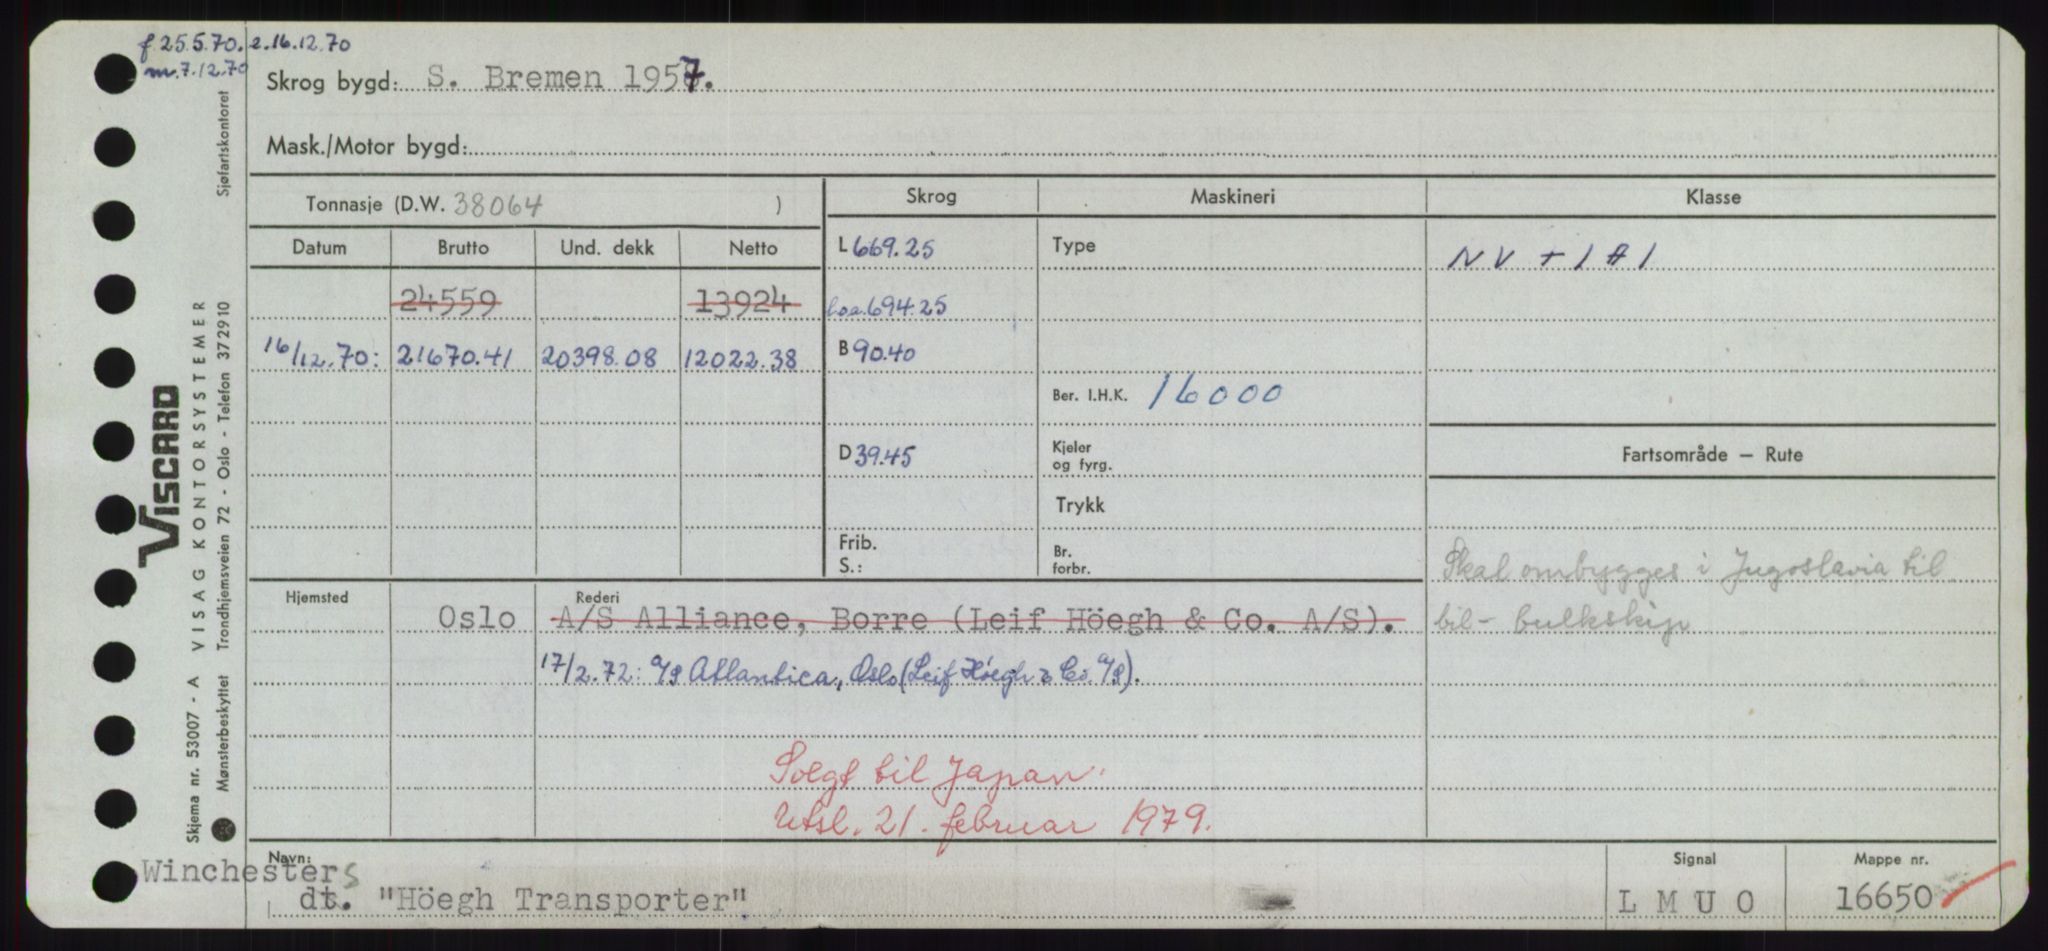 f 25.5.70. 2.16.12.70
m.7.12.70
Skrog bygd: S. Bremen 1957.
Mask./Motor bygd:
Tonnasje (D.W. 38064 )
Skrog
Maskineri
Klasse
Datum
Brutto
Und. dekk
Netto
L 669.25
Type
NV + 1 A 1
24559
13924
loa. 694.25
16/12.70: 21670.41 20398.08 12022.38
B 90.40
Ber. I.H.K. 16000
D 39.45
Kjeler
og fyrg.
Fartsområde — Rute
Trykk
Frib.
S.:
Br.
forbr.
Skal ombygges i Jugoslavia til
bil- bulkskip
Hjemsted
Rederi
Oslo
A/S Alliance, Borre (Leif Höegh & Co. A/S).
17/2.72: A/S Atlantica, Oslo (Leif Höegh & Co. A/S).
Solgt til Japan.
Utsl. 21. februar 1979.
Navn:
Winchesters
dt. "Höegh Transporter"
Signal
LMUO
Mappe nr.
16650
Skjema nr. 53007 - A VISAG KONTORSYSTEMER
VISCARD
Mønsterbeskyttet Trondhjemsveien 72 - Oslo - Telefon 372910 Sjøfartskontoret